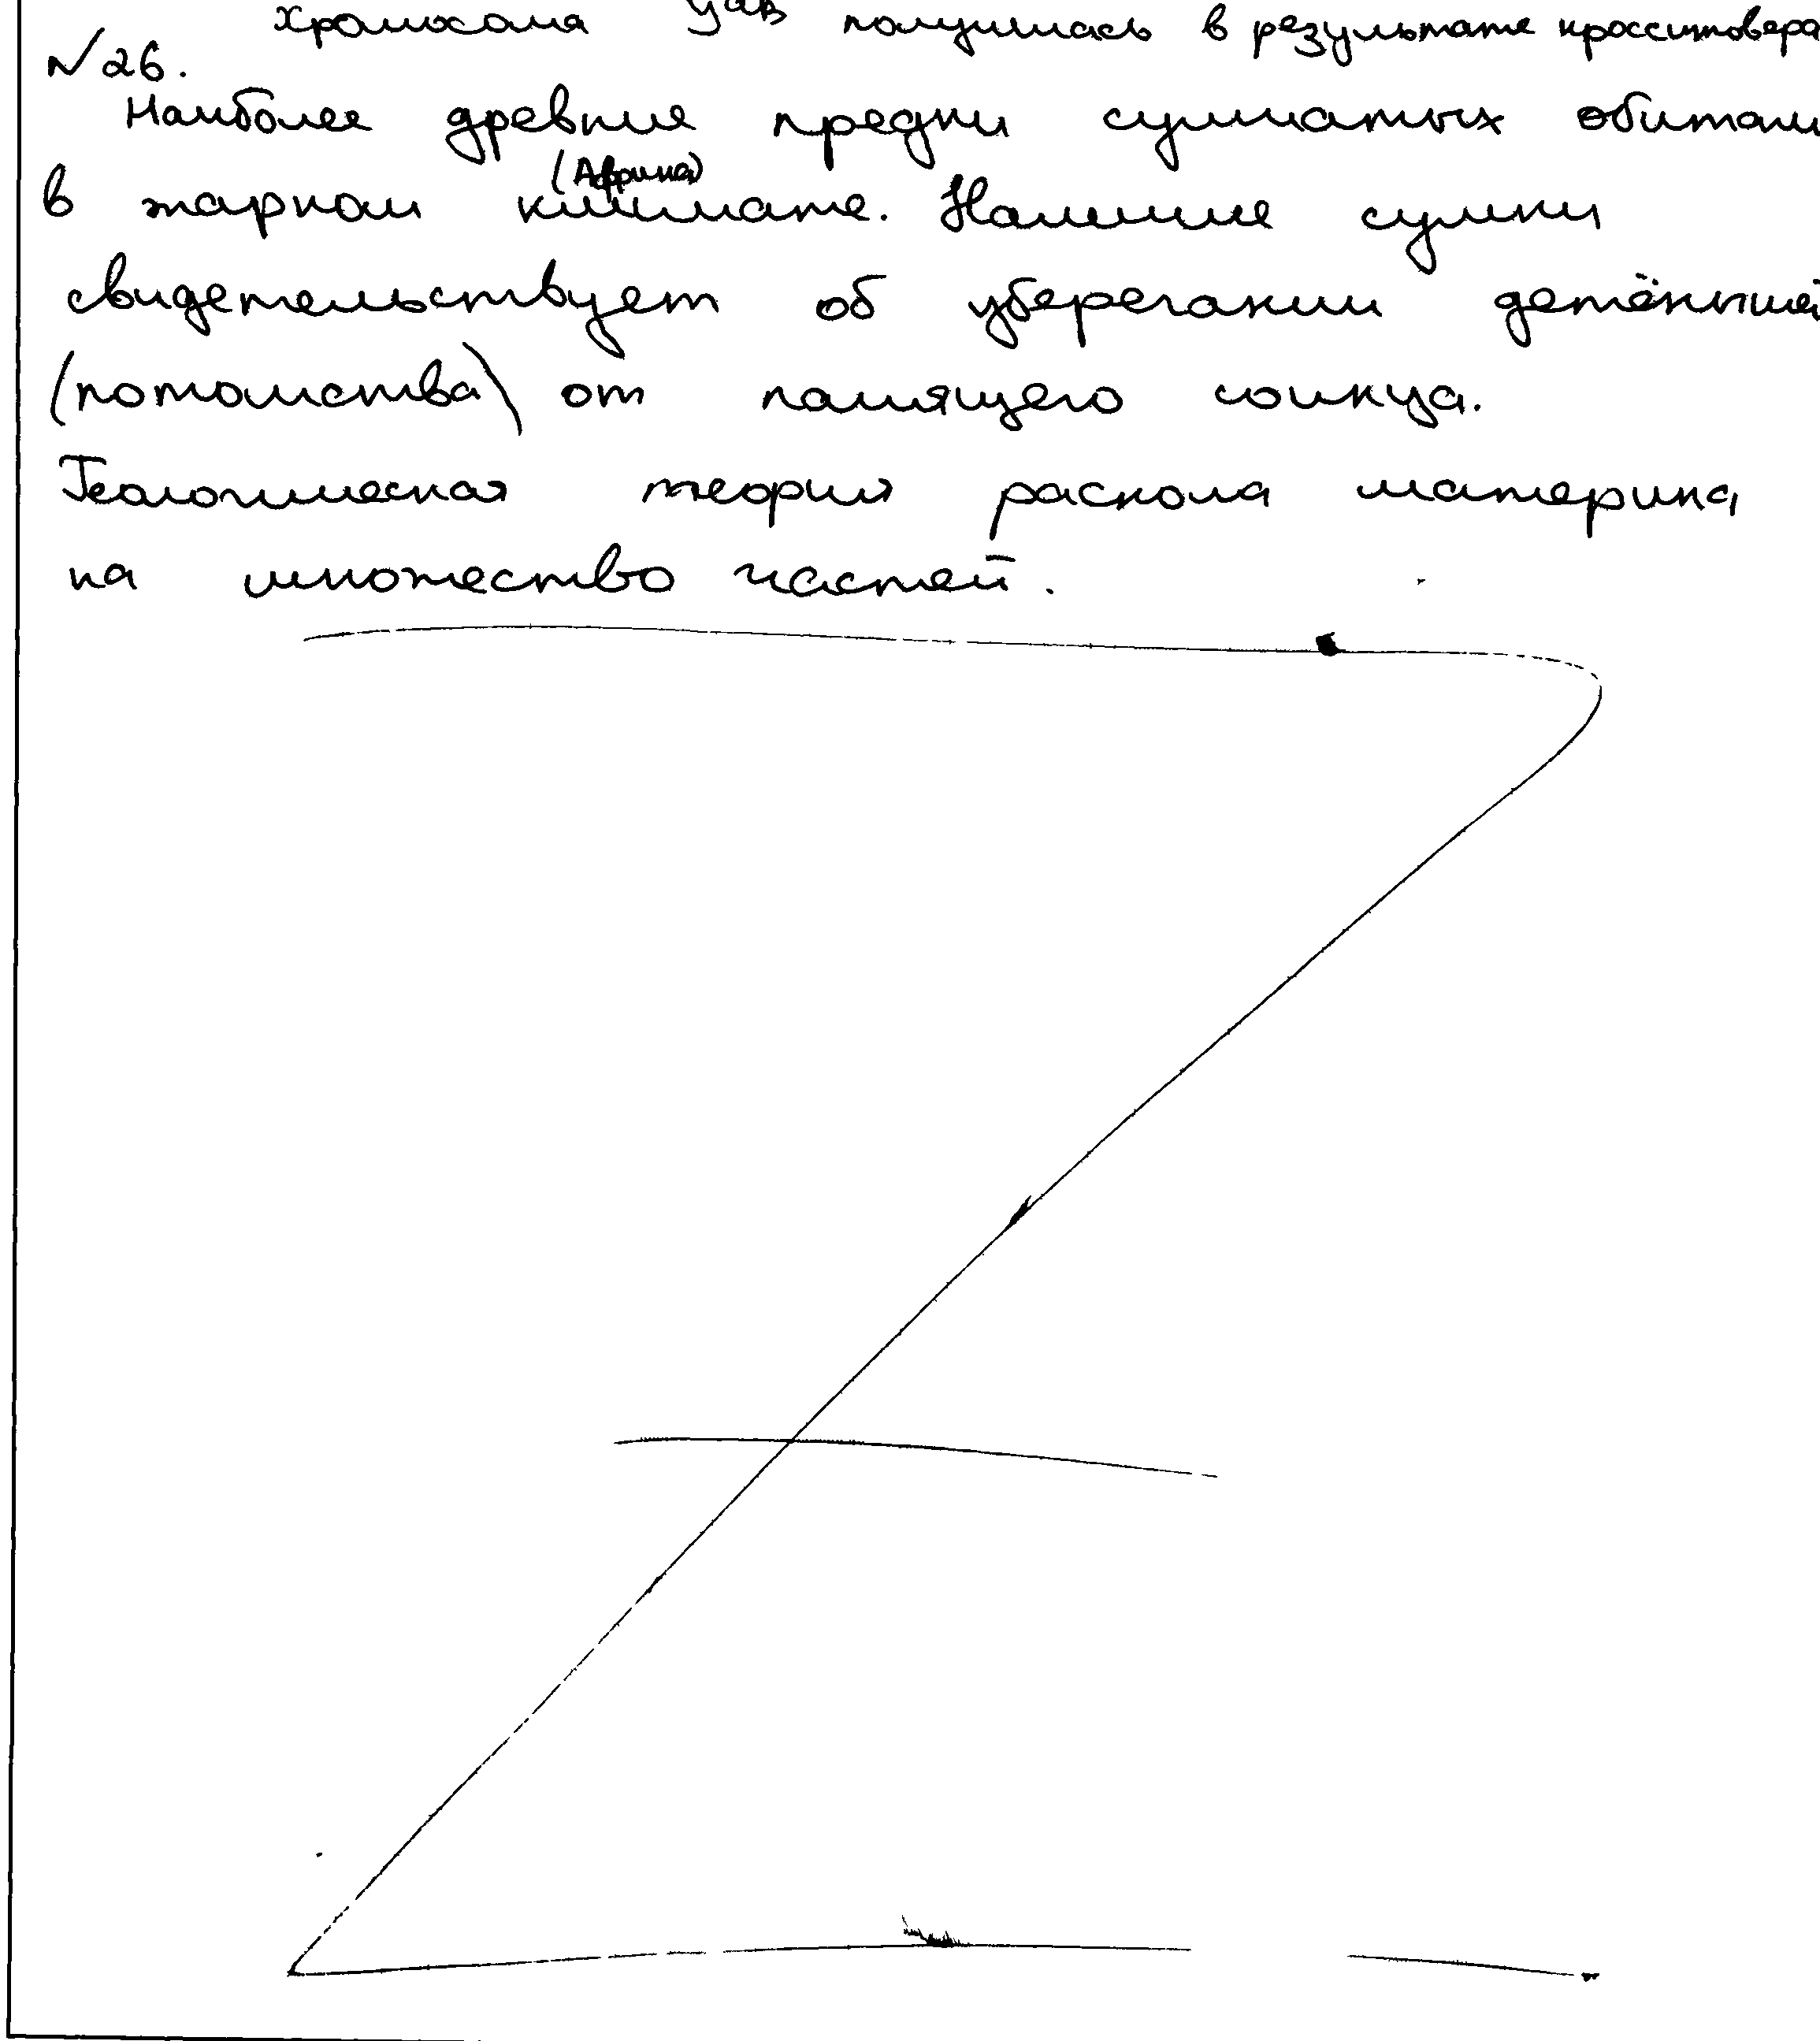 хромосома yᵃB получилась в результате кроссинговера
№26.
Наиболее древние предки сумчатых обитали
(Африка)
в жарком климате. Наличие сумки
свидетельствует об уберегании детёнышей
(потомства) от палящего солнца.
Геологическая теория раскола материка
на множество частей.